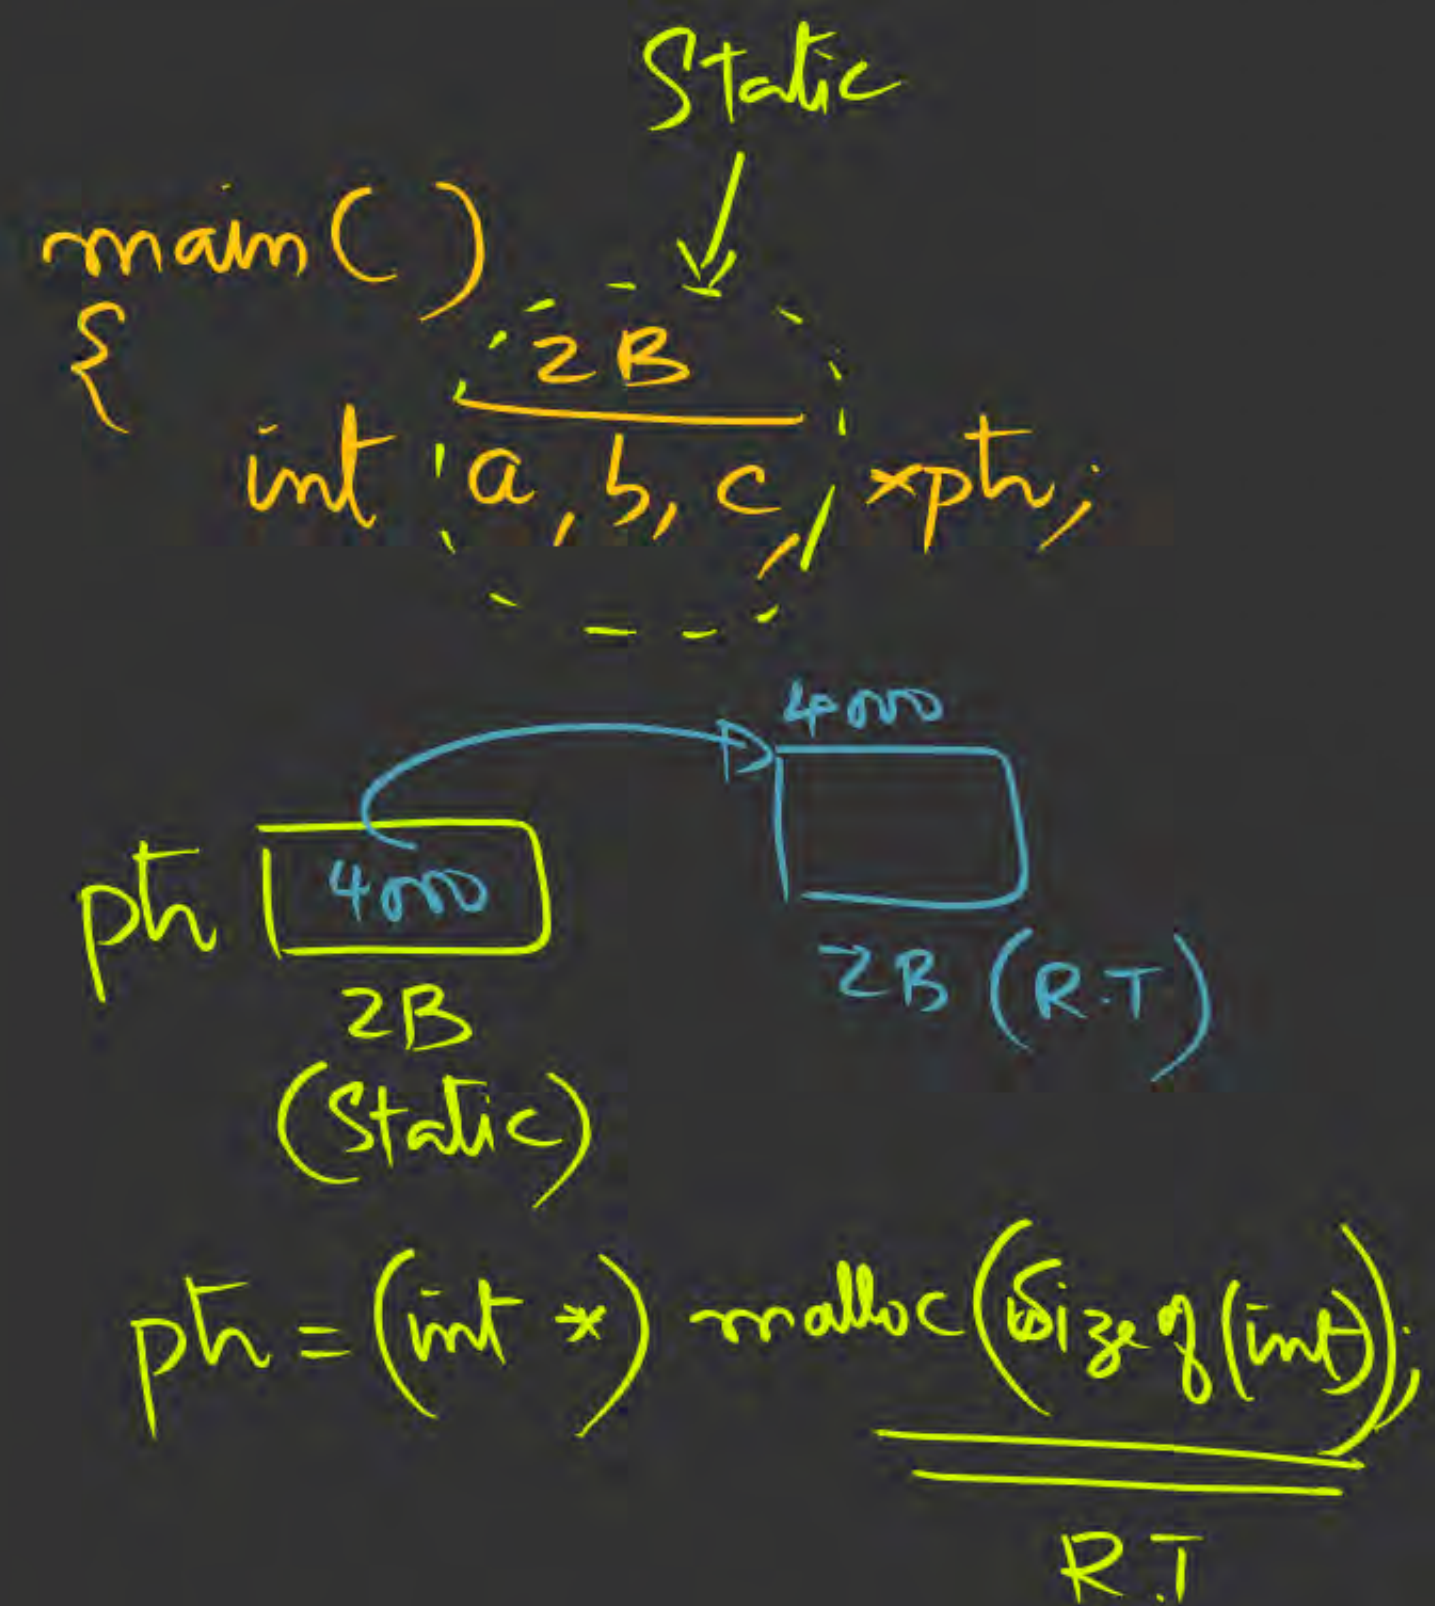 Static
main()
{
2B
int a, b, c, *ptr;
4000
ptr 4000
2B
(Static)
2B (R.T)
ptr = (int *) malloc(sizeof(int));
R.T